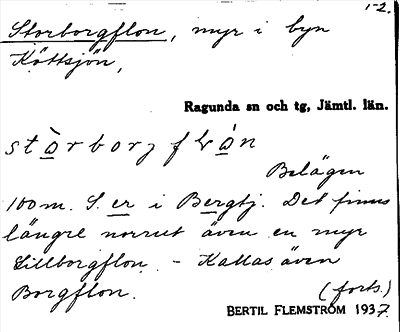 1-2.
Storborgflon, myr i byn
Köttsjön,
Ragunda sn och tg, Jämtl. län.
stòrborj flón
Belägen
100 m. S. er i Bergtj. Det finns
längre norrut även en myr
Lillborgflon. - Kallas även
Borgflon.
(forts.)
BERTIL FLEMSTRÖM 1937.